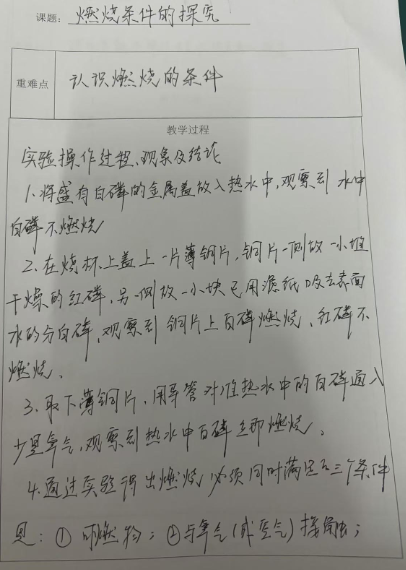 课题: 燃烧条件的探究
重难点 认识燃烧的条件
教学过程
实验操作过程、观象及结论
1.将盛有白磷的金属盖放入热水中,观察到 水中
白磷不燃烧
2.在烧杯上盖上一片薄铜片,铜片一侧放一小堆
干燥的红磷,另一侧放一小块已用滤纸吸去表面
水的分白磷,观察到 铜片上白磷燃烧,红磷不
燃烧.
3.取下薄铜片,用导管对准热水中的白磷通入
少量氧气,观察到热水中白磷立即燃烧。
4.通过实验得出燃烧必须同时满足三个条件
是:①可燃物;②与氧气(或空气)接触;